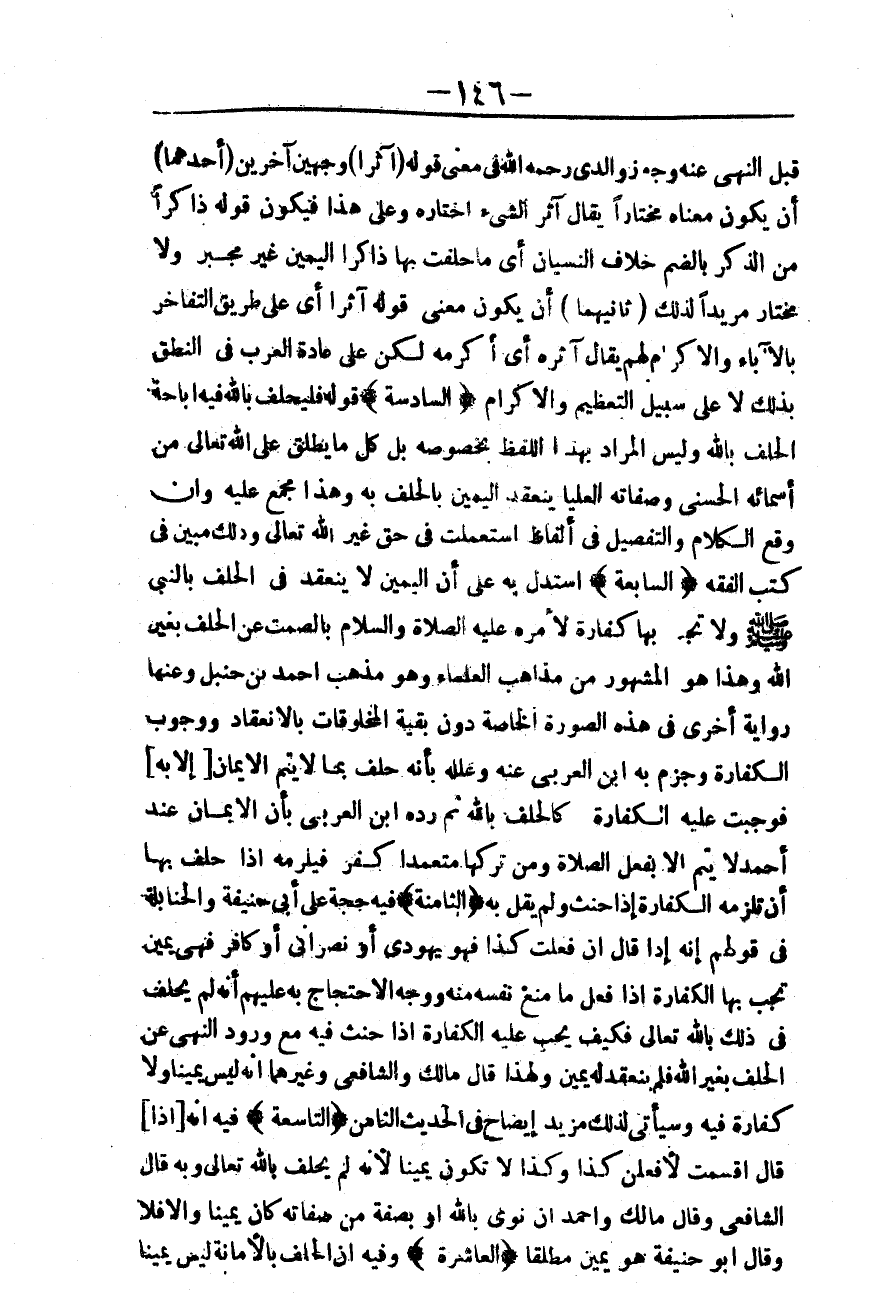 -١٤٦-
قبل النهى عنه وجوز والدى رحمه الله فى معنى قوله (آثرا) وجهين آخرين (أحدهما)
أن يكون معناه مختاراً يقال آثر الشىء اختاره وعلى هذا فيكون قوله ذاكراً
من الذكر بالضم خلاف النسيان أى ماحلفت بها ذاكرا اليمين غير مجبر ولا
مختار مريداً لذلك (ثانيهما) أن يكون معنى قوله آثرا أى على طريق التفاخر
بالآباء والاكرام لهم يقال آثره أى أكرمه لكن على عادة العرب فى النطق
بذلك لا على سبيل التعظيم والاكرام ﴿السادسة﴾ قوله فليحلف بالله فيه اباحة
الحلف بالله وليس المراد بهذا اللفظ بخصوصه بل كل ما يطلق على الله تعالى من
أسمائه الحسنى وصفاته العليا ينعقد اليمين بالحلف به وهذا مجمع عليه وان
وقع الكلام والتفصيل فى ألفاظ استعملت فى حق غير الله تعالى وذلك مبين فى
كتب الفقه ﴿السابعة﴾ استدل به على أن اليمين لا ينعقد فى الحلف بالنبي
ﷺ ولا تجب بها كفارة لأمره عليه الصلاة والسلام بالصمت عن الحلف بغير
الله وهذا هو المشهور من مذاهب العلماء وهو مذهب احمد بن حنبل وعنها
رواية أخرى فى هذه الصورة الخاصة دون بقية المخلوقات بالانعقاد ووجوب
الكفارة وجزم به ابن العربى عنه وعلله بأنه حلف بما لا يتم الايمان [إلا به]
فوجبت عليه الكفارة كالحلف بالله ثم رده ابن العربى بأن الايمان عند
أحمد لا يتم الا بفعل الصلاة ومن تركها متعمدا كفر فيلزمه اذا حلف بها
أن تلزمه الكفارة إذا حنث ولم يقل به ﴿الثامنة﴾ فيه حجة على أبى حنيفة والحنابلة
فى قولهم إنه إذا قال ان فعلت كذا فهو يهودى أو نصرانى أو كافر فهى يمين
تجب بها الكفارة اذا فعل ما منع نفسه منه ووجه الاحتجاج به عليهم أنه لم يحلف
فى ذلك بالله تعالى فكيف يجب عليه الكفارة اذا حنث فيه مع ورود النهى عن
الحلف بغير الله فلم ينعقد له يمين ولهذا قال مالك والشافعى وغيرهما انه ليس يمينا ولا
كفارة فيه وسيأتى لذلك مزيد إيضاح فى الحديث الثامن ﴿التاسعة﴾ فيه انه [اذا]
قال اقسمت لأفعلن كذا وكذا لا تكون يمينا لأنه لم يحلف بالله تعالى وبه قال
الشافعى وقال مالك واحمد ان نوى بالله او بصفة من صفاته كان يمينا والا فلا
وقال ابو حنيفة هو يمين مطلقا ﴿العاشرة﴾ وفيه ان الحلف بالأمانة ليس يمينا